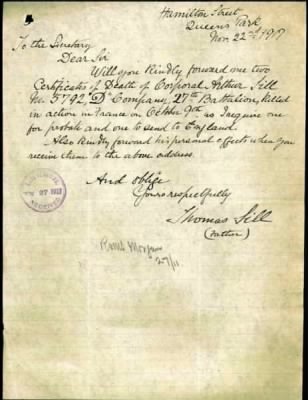 Hamilton Street
Queens Park
Nov. 22nd 1917
To the Secretary
Dear Sir
Will you kindly forward me two
Certificates of Death of Corporal Arthur Sill
No 5792 "D" Company 27th Battalion, killed
in action in France on October 9th as I require one
for probate and one to send to England.
Also kindly forward his personal effects when you
receive them to the above address.
And oblige
Yours respectfully
Thomas Sill
(Father)
27 1917
RECEIVED
27/11